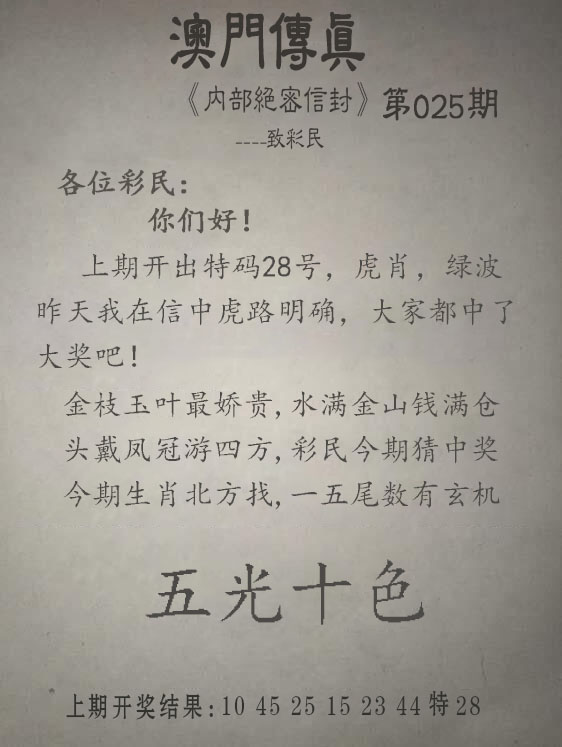 澳門傳眞
《内部絕密信封》第025期
----致彩民
各位彩民：
你们好！
上期开出特码28号，虎肖，绿波
昨天我在信中虎路明确，大家都中了
大奖吧！
金枝玉叶最娇贵,水满金山钱满仓
头戴凤冠游四方,彩民今期猜中奖
今期生肖北方找,一五尾数有玄机
五光十色
上期开奖结果：10 45 25 15 23 44 特 28